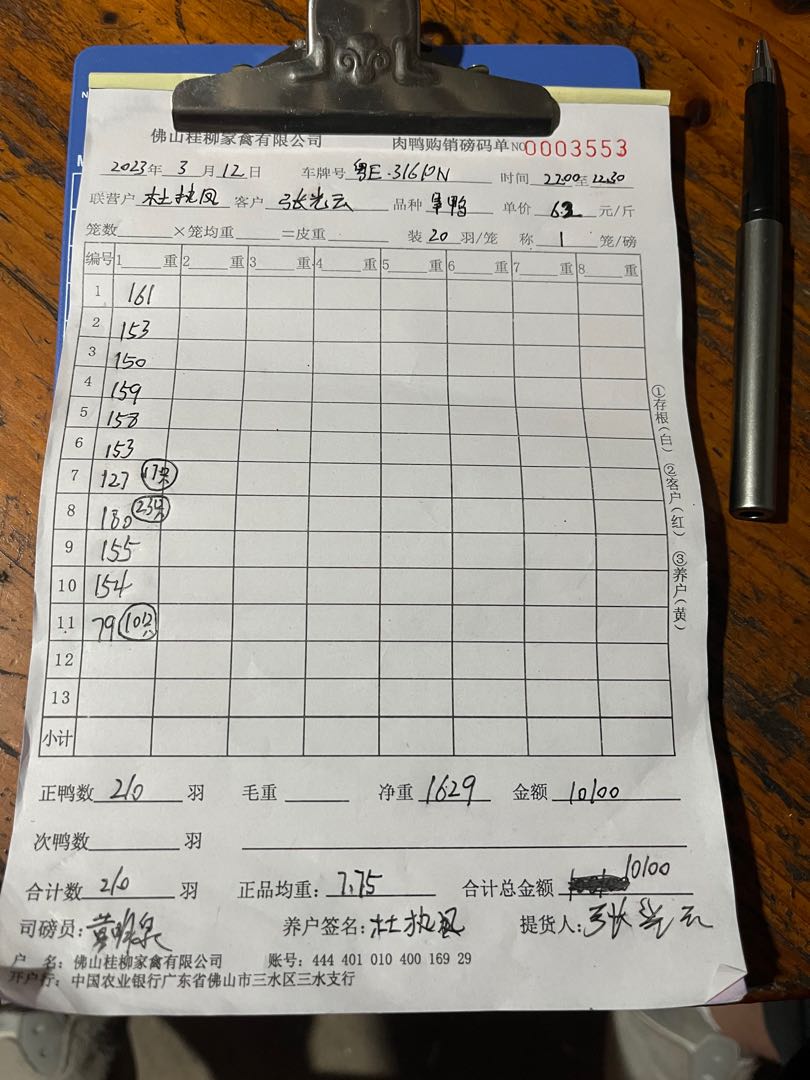 佛山桂柳家禽有限公司 肉鸭购销磅码单 NO 0003553
2023年 3月12日 车牌号 粤E·316PN 时间 22:00至22:30
联营户 杜执凤 客户 张光云 品种 单价 6.2 元/斤
笼数 ×笼均重 =皮重 装 20 羽/笼 称 1 笼/磅
编号 1 重 2 重 3 重 4 重 5 重 6 重 7 重 8 重
1 161
2 153
3 150
4 159
5 158
6 153
7 127 17只
8 180 23只
9 155
10 154
11 79 10只
12
13
小计
正鸭数 210 羽 毛重 净重 1629 金额 10100
次鸭数 羽
合计数 210 羽 正品均重: 7.75 合计总金额 10100
司磅员: 养户签名: 杜执凤 提货人: 张光云
户 名: 佛山桂柳家禽有限公司 账号: 444 401 010 400 169 29
开户行: 中国农业银行广东省佛山市三水区三水支行
①存根(白) ②客户(红) ③养户(黄)